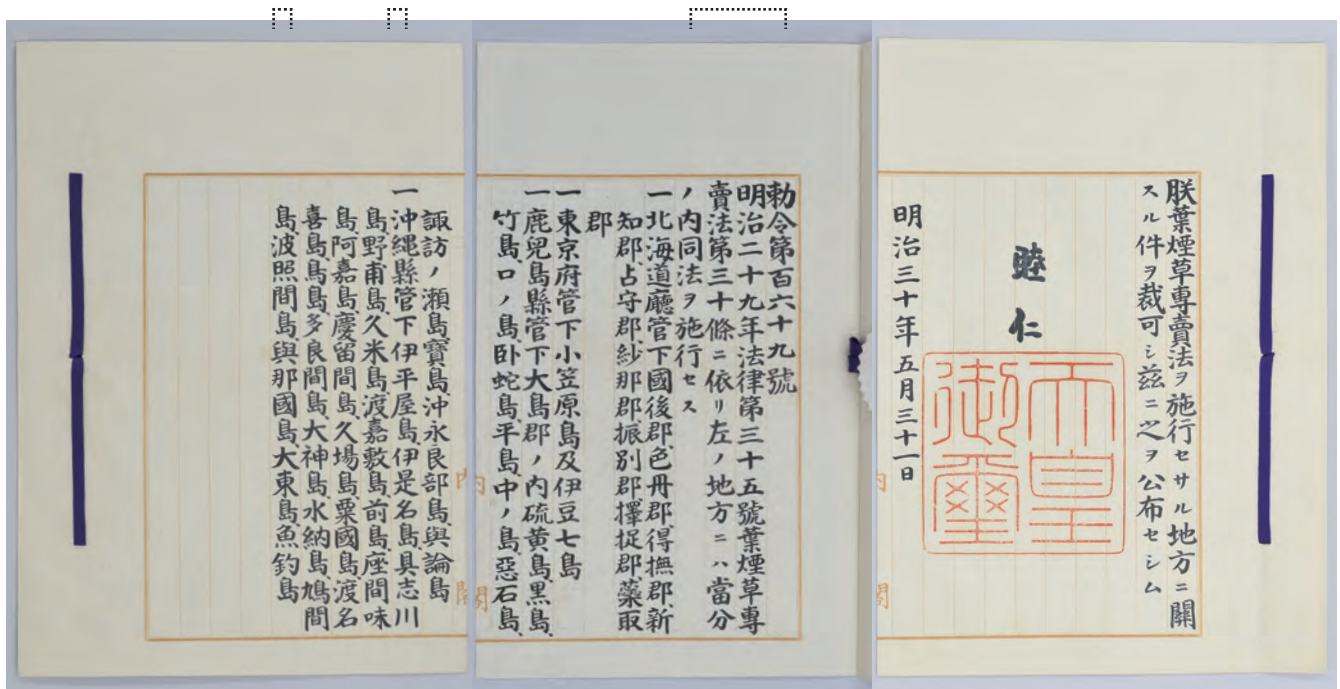 朕葉煙草專賣法ヲ施行セサル地方ニ關
スル件ヲ裁可シ茲ニ之ヲ公布セシム
睦仁
天皇
御璽
明治三十年五月三十一日
勅令第百六十九號
明治二十九年法律第三十五號葉煙草專
賣法第三十條ニ依リ左ノ地方ニハ當分
ノ內同法ヲ施行セス
一北海道廳管下國後郡、色丹郡、得撫郡、新
知郡、占守郡、紗那郡、振別郡、擇捉郡、蘂取
郡
一東京府管下小笠原島及伊豆七島
一鹿兒島縣管下大島郡ノ內硫黃島、黑島、
竹島、口ノ島、臥蛇島、平島、中ノ島、惡石島、
諏訪ノ瀨島、寶島、沖永良部島、與論島
一沖繩縣管下伊平屋島、伊是名島、具志川
島、野甫島、久米島、渡嘉敷島、前島、座間味
島、阿嘉島、慶留間島、久場島、粟國島、渡名
喜島、鳥島、多良間島、大神島、水納島、鳩間
島、波照間島、與那國島、大東島、魚釣島
內閣
內閣